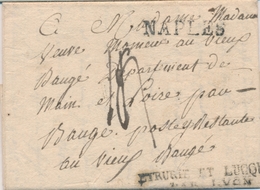 A Madame Madame
NAPLES
Veuve Moneur au Vieux
Baugé Département de
Main et Loire par
18
Bauge poste Restante
au Vieux Bauge
ETRURIE ET LUCQU
PAR LYON